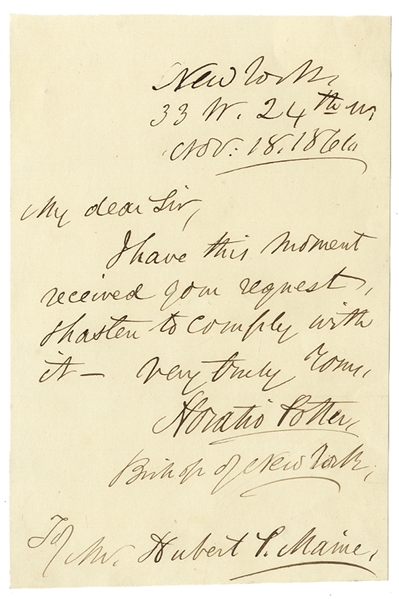 New York,
33 W. 24th
Nov: 18. 1866
My dear Sir,
I have this moment
received your request,
& hasten to comply with
it — very truly Yours,
Horatio Potter,
Bishop of New York,
To/
Mr. Hubert P. Maine,